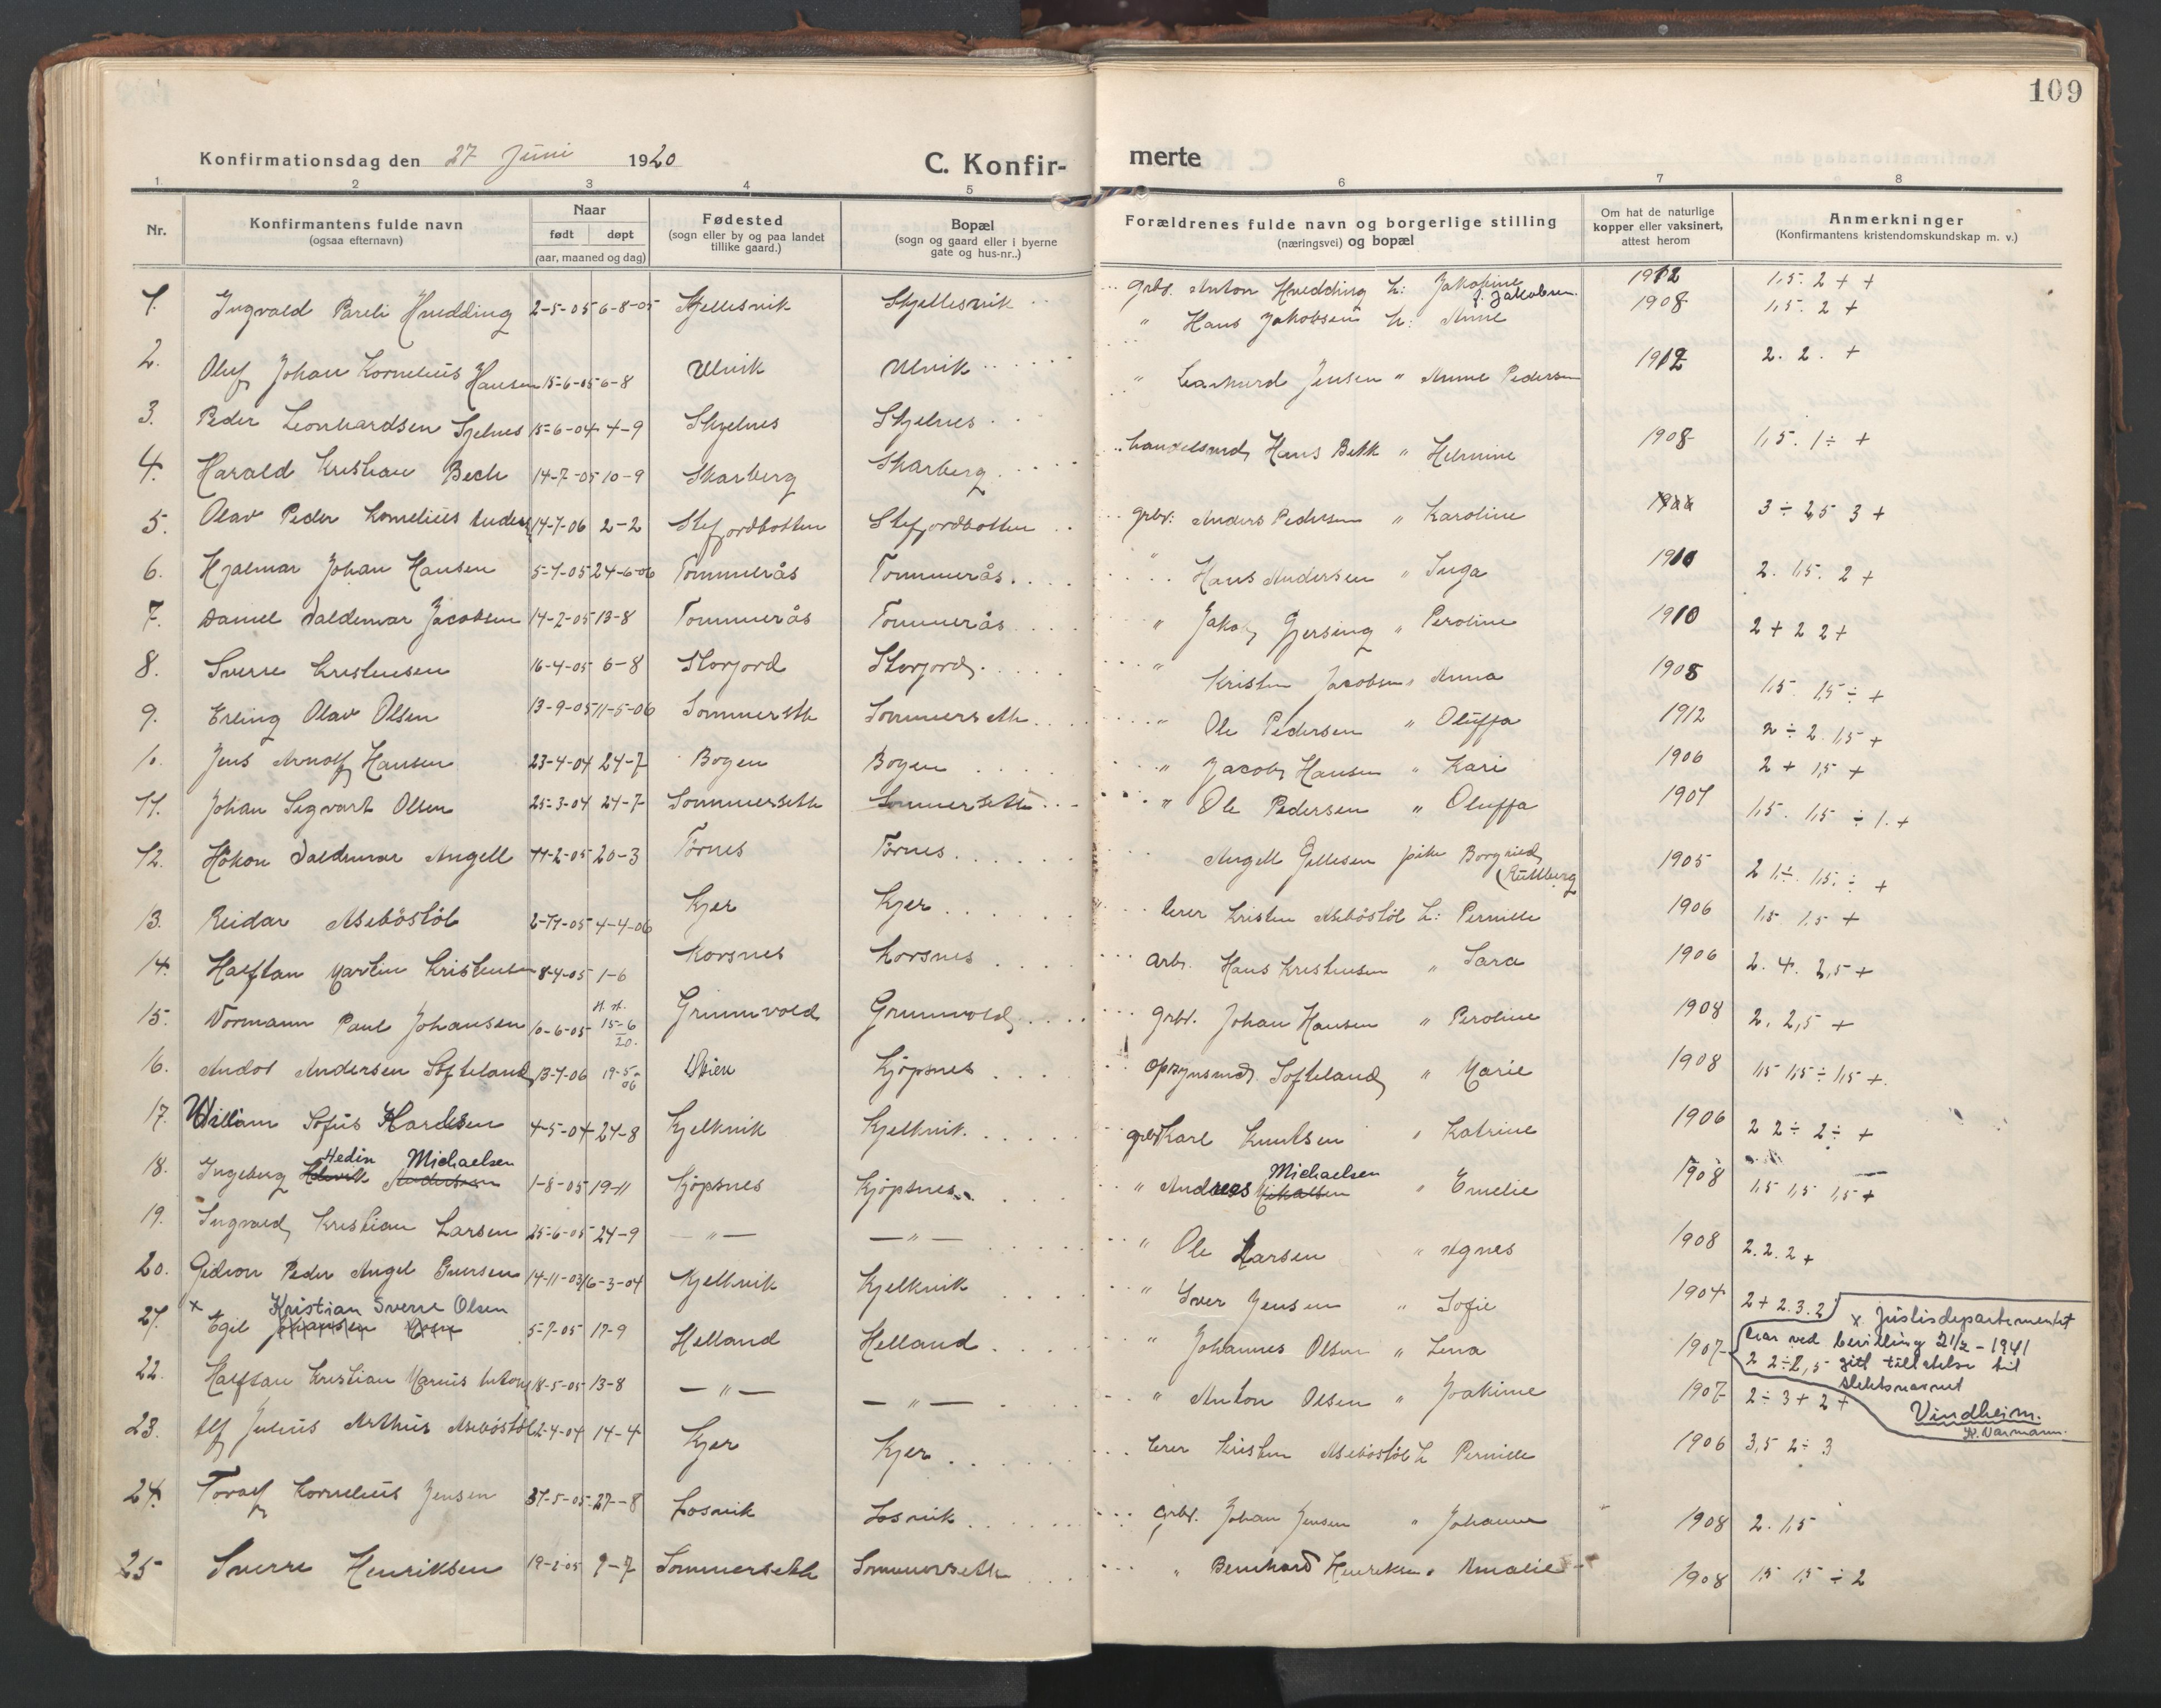 109
Konfirmationsdag den 27 Juni 1920 C. Konfir- merte
1 2 3 4 5 6 7 8
Nr. Konfirmantens fulde navn (ogsaa efternavn) Naar født døpt (aar, maaned og dag) Fødested (sogn eller by og paa landet tillike gaard.) Bopæl (sogn og gaard eller i byerne gate og hus-nr..) Forældrenes fulde navn og borgerlige stilling (næringsvei) og bopæl Om hat de naturlige kopper eller vaksinert, attest herom Anmerkninger (Konfirmantens kristendomskundskap m. v.)
1. Ingvald Pareli Hvedding 2-5-05 6-8-05 Skjellesvik Skjellesvik grbr. Anton Hvedding h: Jakobine f. Jakobsen 1912 1,5. 2 + +
2. Oluf Johan Kornelius Hansen 15-6-05 6-8 Ulvik Ulvik " Hans Jakobsen h: Anne 1908 1,5. 2 +
3. Peder Leonhardsen Sjelnes 15-6-04 4-9 Skjelnes Skjelnes " Leonhard Jensen " Anne Pedersen 1912 2. 2. +
4. Harald Kristian Bech 14-7-05 10-9 Skarberg Skarberg handelsmd Hans Bekk " Helmine 1908 1,5. 1 ÷ +
5. Olav Peder Kornelius Anders 14-7-06 2-2 Stefjordbotten Stefjordbotten grbr: Anders Pedersen " Karoline 3 ÷ 2,5 3 +
6. Hjalmar Johan Hansen 5-7-05 24-6-06 Tommerås Tommerås " Hans Andersen " Inga 1910 2. 1,5. 2 +
7. Daniel Valdemar Jacobsen 14-2-05 13-8 Tommerås Tommerås " Jakob Gjersing " Peroline 1910 2 + 2 2 +
8. Sverre Kristensen 16-4-05 6-8 Storjord Storjord " Kristen Jacobsen " Anna 1905 1,5. 1,5 ÷ +
9. Erling Olav Olsen 13-9-05 11-5-06 Sommerseth Sommerseth " Ole Pedersen " Oluffa 1912 2 ÷ 2. 1,5 +
10. Jens Arnolf Hansen 23-4-04 24-7 Bogen Bogen " Jacob Hansen " Kari 1906 2 + 1,5 +
11. Johan Sigvart Olsen 25-3-04 24-7 Sommerseth Sommerseth " Ole Pedersen " Oluffa 1907 1,5. 1,5 ÷ 1. +
12. Håkon Valdemar Angell 11-2-05 20-3 Tørnes Tørnes Angell Gillesen pike Borghild 1905 2 1 ÷ 1,5. ÷ +
13. Reidar Asebøstøl 2-11-05 4-4-06 Kjer Kjer lærer Kristen Asebøstøl h: Pernille 1906 1,5 1,5 +
14. Halftan Martin Kristensen 8-4-05 1-6 Korsnes Korsnes arb. Hans Kristensen " Sara 1906 2. 4. 2,5 +
15. Normann Paul Johansen 10-6-05 15-6 20. Grunnvold Grunnvold grbr. Johan Hansen " Peroline 1908 2. 2,5 +
16. Andor Andersen Softeland 13-7-06 19-5-06 Kjøpsnes opsynsmd. Softeland " Marie 1908 1,5 1,5 ÷ 1,5 +
17. William Sofus Karlsen 4-5-04 24-8 Kjelkvik Kjelkvik grbr Karl Knutsen " Katrine 1906 2 2 ÷ 2 ÷ +
Hedin Michaelsen Michaelsen
18. Ingeberg Andersen 1-8-05 19-11 Kjøpsnes Kjøpsnes " Andreas Mikalsen " Emelie 1908 1,5 1,5 1,5 +
19. Ingvald Kristian Larsen 25-6-05 24-9 — " — — " — " Ole Larsen " Agnes 1908 2. 2. 2 +
20. Gideon Peder Angel Iversen 14-11-03 16-3-04 Kjelkvik Kjelkvik " Iver Jensen " Sofie 1904 2 + 2. 3. 2
x Kristian Sverre Olsen
21. Egil Johansen Olsen 5-7-05 17-9 Helland Helland " Johannes Olsen " Lina 1907 2 2 ÷ 2,5
x Justisdepartementet
har ved bevilling 21/2 - 1941
gitt tillatelse til
slektsnavnet
Vindheim.
22. Halftan Kristian Marius Antons 18-5-05 13-8 — " — — " — " Anton Olsen " Joakime 1907 2 ÷ 3 + 2 +
23. Alf Julius Arthur Asebøstøl 2-4-04 14-4 Kjer Kjer lærer Kristen Asebøstøl h Pernille 1906 3,5 2 ÷ 3
24. Toralf Kornelius Jensen 31-5-05 27-8 Losvik Losvik grbr. Johan Jensen " Johanne 1908 2. 1,5
25 Sverre Henriksen 19-2-05 9-7 Sommerseth Sommerseth " Bernhard Henriksen " Amalie 1908 1,5 1,5 ÷ 2